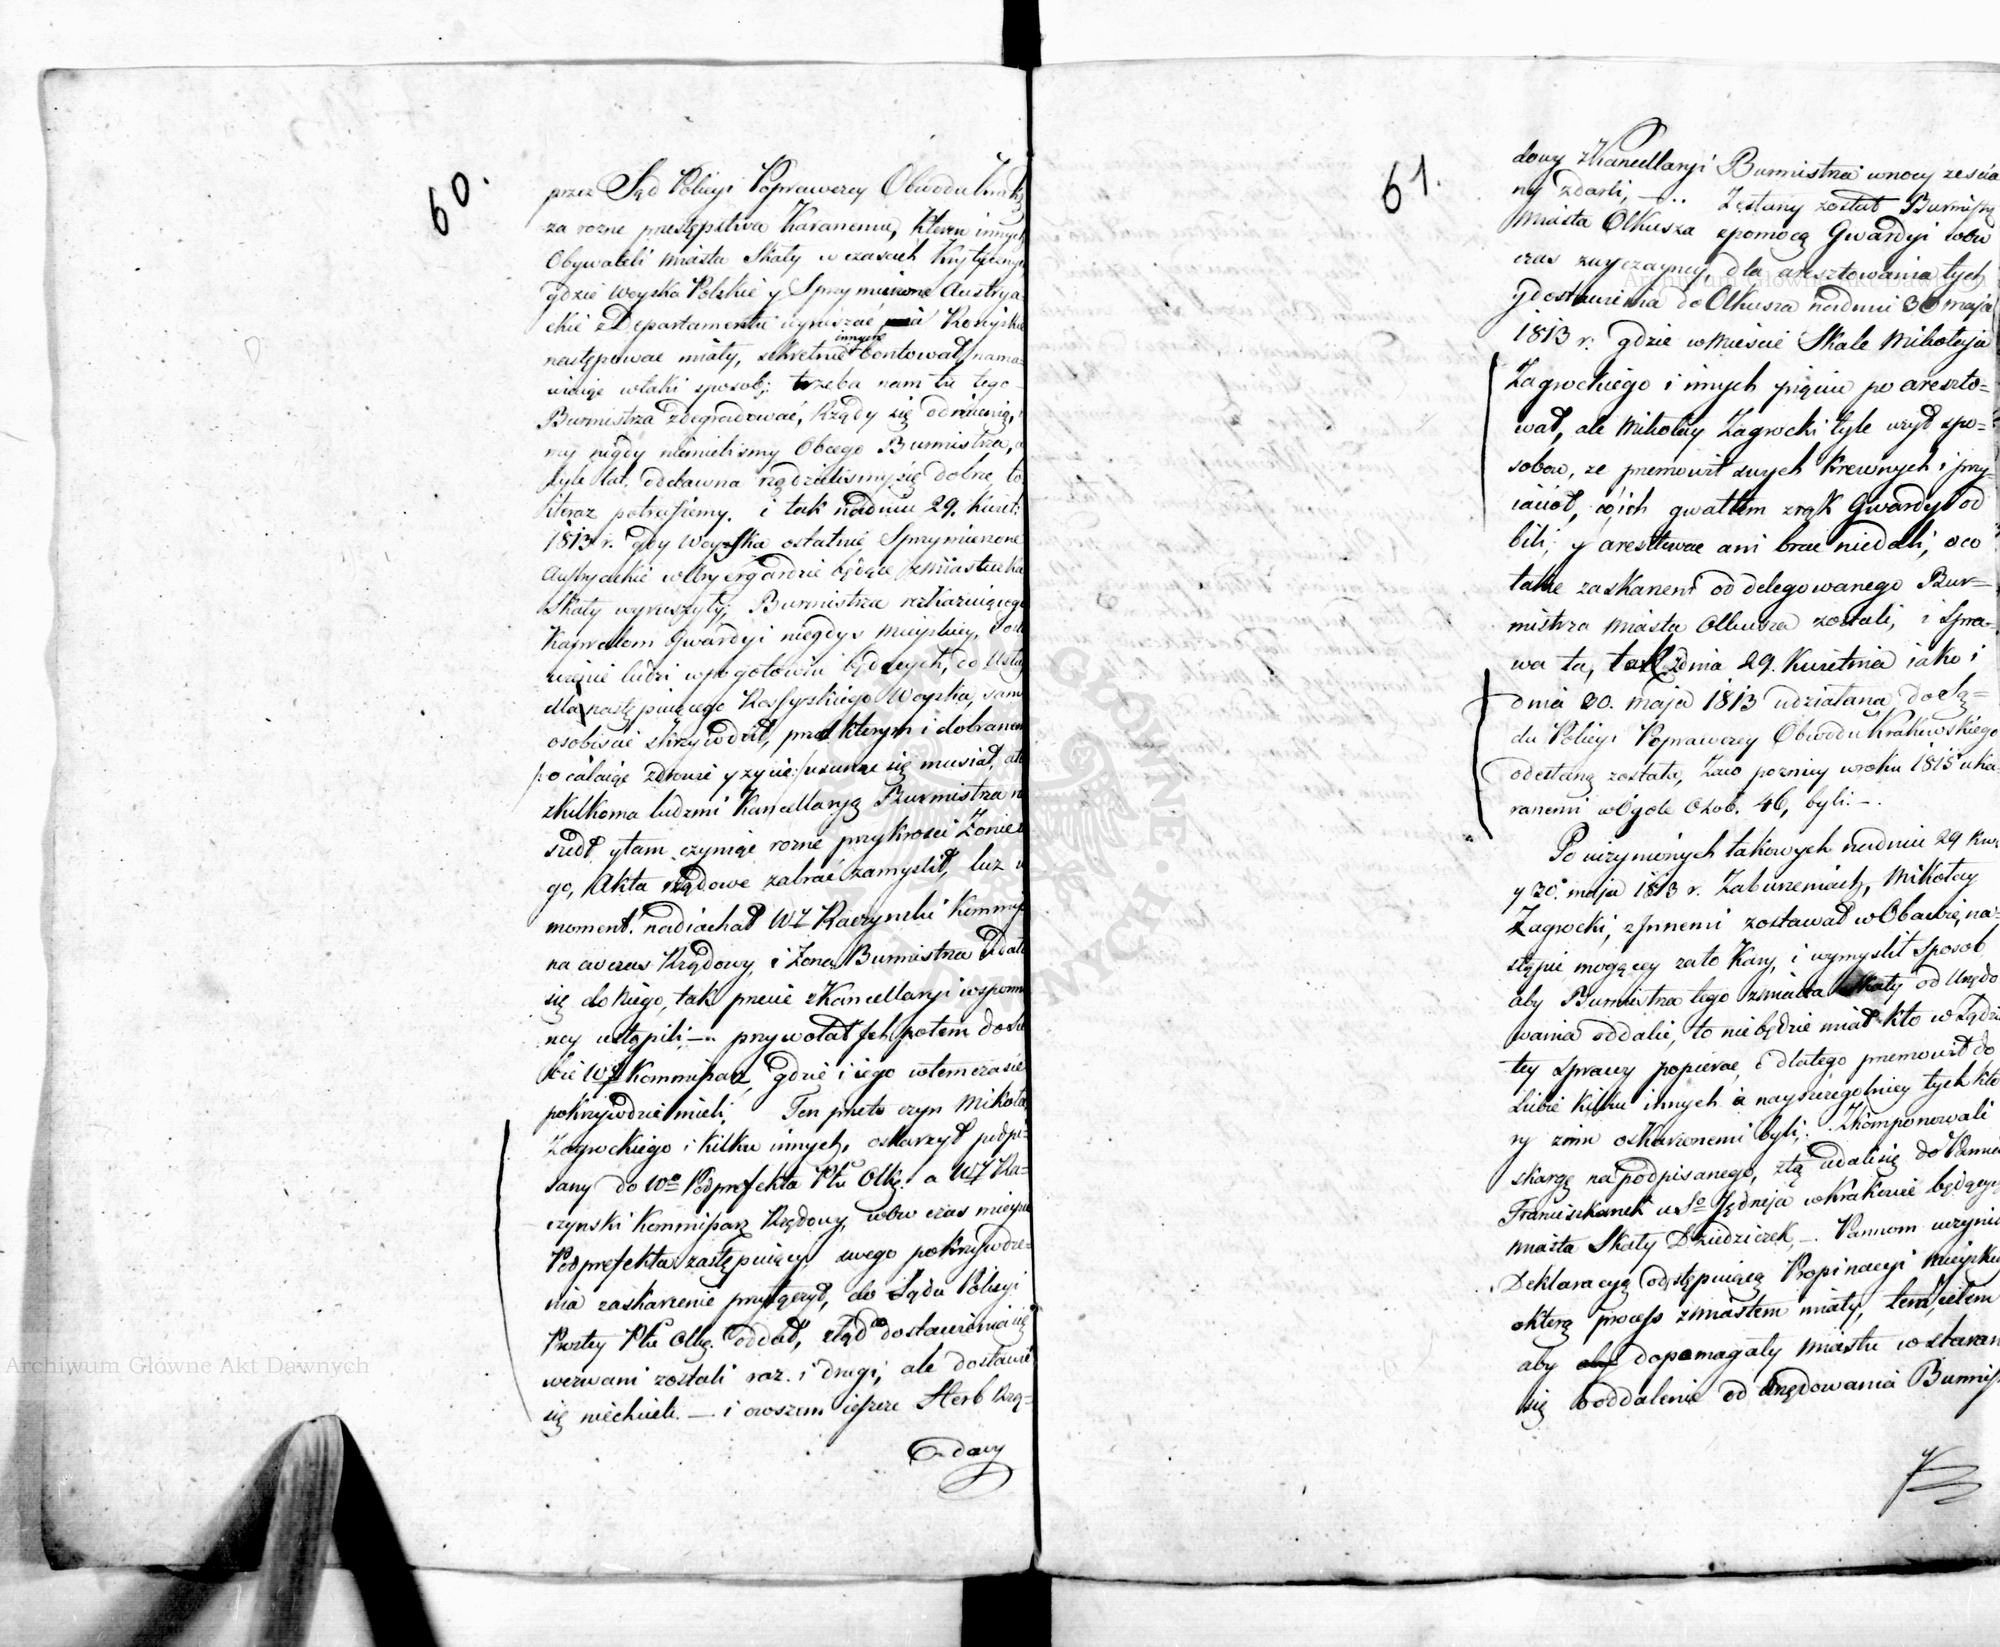 60.
przez Sąd Policyi Poprawczey Obwodu
za rozne przestępstwa Karanemu, Któren innych
Obywateli Miasta Skały w czasach Krytycznych
gdzie Woyska Polskie y Sprzymierzone Austrya
ckie z Departamentu wyruszac a Rosyiskie
następować miały, sekretnie innych bontował nama
wiaiąc w taki sposob; trzeba nam tu tego
Burmistrza zdegradować, Rządy się odmienią,
my nigdy niemieliśmy Obcego Burmistrza, a
tyle lat, oddawna rządziliśmy się dobrze, to
i teraz potrafiemy. i tak na dniu 29. Kwiet:
1813 r. gdy Woyska ostatnie Sprzymierzone
Austryackie w Aryergardzie będące z Miasteczka
Skały wyruszyły; Burmistrza rozkazuiącego
Kapralom Gwardyi niegdys Mieyskiey,
ludzi w pogotowiu będących, do
dla następuiącego Rossyyskiego Woyska, sam
osobiscie skrzywdził, przed którym i dobranemi
ocalaiąc zdrowie y zycie usunąć się musiał, ale
z kilkoma ludzmi Kancellaryą Burmistrza na
szedł y tam czyniąc rozne przykrości Zonie
go, Akta rządowe zabrać zamyslił, lecz w
moment nadiachał WJ Raczynski Kommiss
na owczas Rządowy, i Zona Burmistrza udała
się do Niego, tak precie z Kancellaryi wspomn
ncy ustąpili — przywołał Jch potem do sie
bie WJ Kommissarz, gdzie i iego w tem czasie
pokrzywdzić mieli; Ten przeto czyn Mikoła
Zagrockiego i kilku innych, oskarzył podpi-
sany do Wo Podprefekta Ptu Olkg. a WJ Ra-
czynski Kommissarz Rządowy, w ow czas mieysce
Podprefekta zastępuiący swego pokrzywdze-
nia zaskarzenie przyłączył, do Sądu Policyi
Prostey Ptu Olkg. oddał, zkąd do stawienia się
wezwani zostali raz i drugi; ale dostawić
się niechcieli. — i owszem iescze Herb Rzą-
dowy
61.
dowy z Kancellaryi Burmistrza w nocy ze scia
ny zdarli, — Zesłany został Burmistrz
Miasta Olkusza z pomocą Gwardyi w ow
czas zwyczayney, dla aresztowania tych
y dostawienia do Olkusza na dniu 30 maja
1813 r: gdzie w Mieście Skale Mikołaja
Zagrockiego i innych pięciu po areszto=
wał, ale Mikołay Zagrocki tyle uzył spo=
sobow, ze przemowił swych Krewnych i przy
iaciół, i oich gwałtem z rąk Gwardyi od
bili; y aresztowac ani brac niedali, o co
takze zaskarzeni od delegowanego Bur=
mistrza Miasta Olkusza zostali; i Spra-
wa ta, tak z dnia 29. Kwietnia iako i
dnia 30. maja 1813 udziałana do Są=
du Policyi Poprawczey Obwodu Krakowskiego
odesłaną została, Za co pozniey w roku 1815 uka
ranemi w Ogole Osob. 46, byli. —
Po uczynionych takowych na dniu 29 Kwi
y 30. maja 1813 r. Zaburzeniach, Mikołay
Zagrocki, z Jnnemi zostawał w Obawie, na=
stąpić mogącey za to Kary, i wymyslił sposob
aby Burmistrza tego z miasta Skały od Urzędo
wania oddalić, to nie będzie miał kto w Sądzie
tey sprawy popierac, i dlatego przemowił do
siebie kilku innych a nayszczegolniey tych kto
rzy z nim oskarzonemi byli; Zkomponowali
skargę na podpisanego, z tą udali się do Panien
Franciszkanek u So Jędrzeja w Krakowie będących
Miasta Skały Dziedziczek, — Pannom uczynili
Deklaracyą odstępuiącą Propinacyi Mieyskiey
o którą process z miastem miały, tem celem
aby dopomagały miastu w staran
się o oddalenie od Urzędowania Burmist